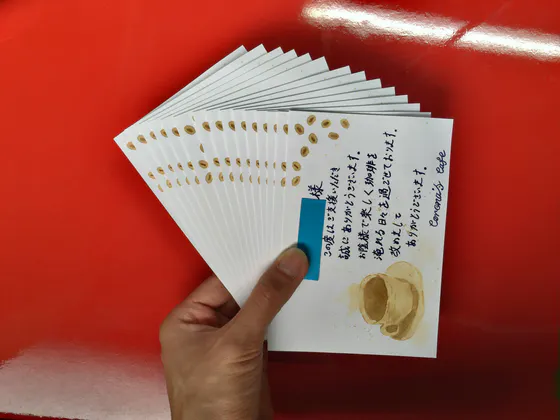 様
この度はご支援いただき
誠にありがとうございます。
お陰様で楽しく珈琲を
淹れる日々を過ごせております。
改めまして
ありがとうございます。
Corona's Cafe